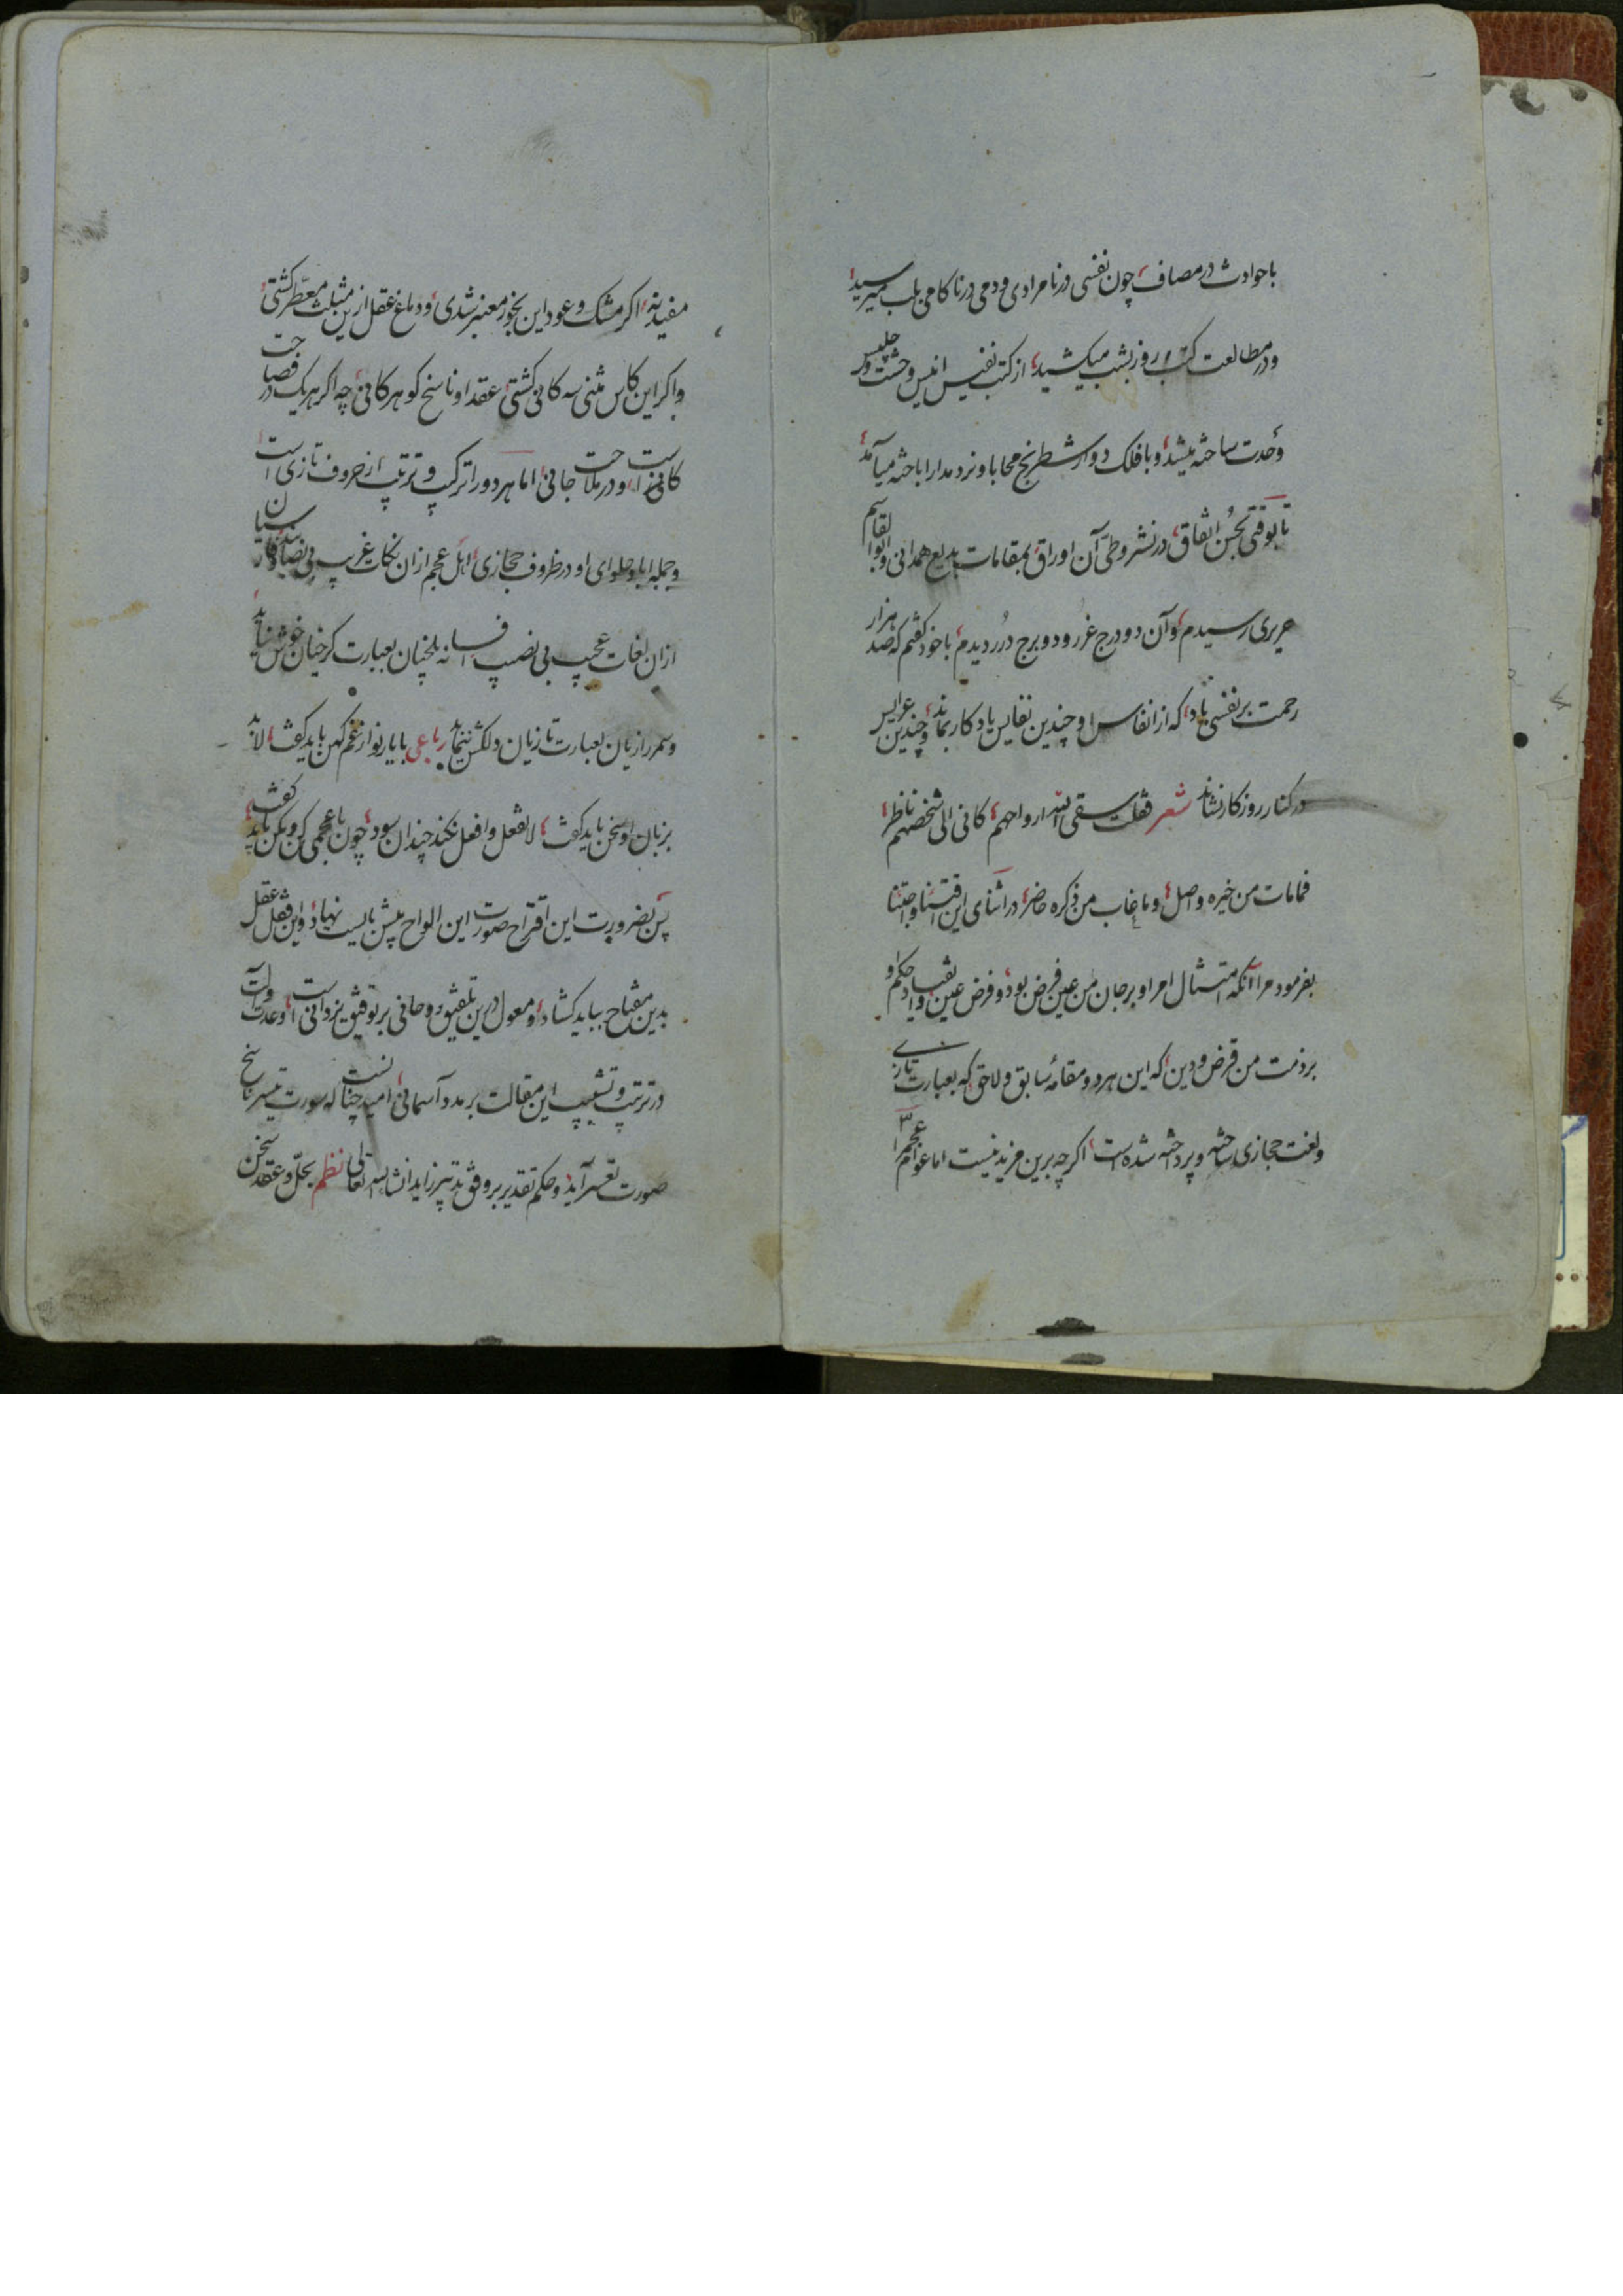 با حوادث در مصاف، چون نفسی در نامرادی و دمی در ناکامی بلب میرسید
و در مطالعت کتب روز بشب میکشید، از کتب نفیس انیس وحشت و جلیس
وحدت ساخته میشد، و با فلک دوار شطرنج محابا و نرد مدارا باخته میآمد
تا بوقتی بحسن اتفاق، در نشر و طی آن اوراق بمقامات بدیع همدانی و ابوالقاسم
حریری رسیدم، و آن دو درج غرر و دو برج درر دیدم، با خود گفتم که صد هزار
رحمت بر نفسی باد، که از انفاس او چندین نفایس یادگار بماند، و چندین عرایس
در کنار روزگار نشاند شعر فقلت سقی الله ارواحهم، کانی الی شخصهم ناظر
فمامات من خیره واصل، و ماغاب من ذکره حاضر، در اثنای این اقتنا و اجتنا
بفرمود مرا آنکه امتثال امر او بر جان من عین فرض بود، و فرض عین و انقیاد حکم او
بر ذمت من قرض و دین، که این هر دو مقامهٔ سابق و لاحق که بعبارت تازی
و لغت حجازی ساخته و پرداخته شده است، اگرچه برین مزید نیست اما عوام عجم را
مفید نه، اکر مشک و عود این بخور معنبر شدی، و دماغ عقل ازین مثلث معطر کشتی
و اکر این کاس مثنی سه کانی کشتی، عقد او ناسخ کوهر کانی، چه اکر هریک در فصاحت
کانی است، و در ملاحت جانی، اما هر دو را ترکیب و ترتیب از حروف تازی است
و جمله ابا و حلوای او در ظروف حجازی، اهل عجم ازان نکات غریب بی نصاب اند و فارسیان
ازان لغات عجیب بی نصیب فسانه بلخیان بعبارت کرخیان خوش نیاید
و سمر رازیان بعبارت تازیان دلکش ننماید رباعی با یار نو از غم کهن باید کفت، لابد
بزبان او سخن باید کفت، لاتفعل و افعل نکند چندان سود، چون با عجمی کن و مکن باید کفت
پس بضرورت این اقتراح صورت این الواح پیش بایست نهاد، و این قفل عقل
بدین مفتاح بباید کشاد، و معول درین تلفیق روحانی بر توفیق یزدانی است، و عدت و آلت
در ترتیب و تشبیب این مقالت بر مدد آسمانی، امید چنانست که سورت تیسیر ناسخ
صورت تعسیر آید، و حکم تقدیر بر وفق تدبیر زاید انشاالله تعالی نظم بحل و عقد سخن